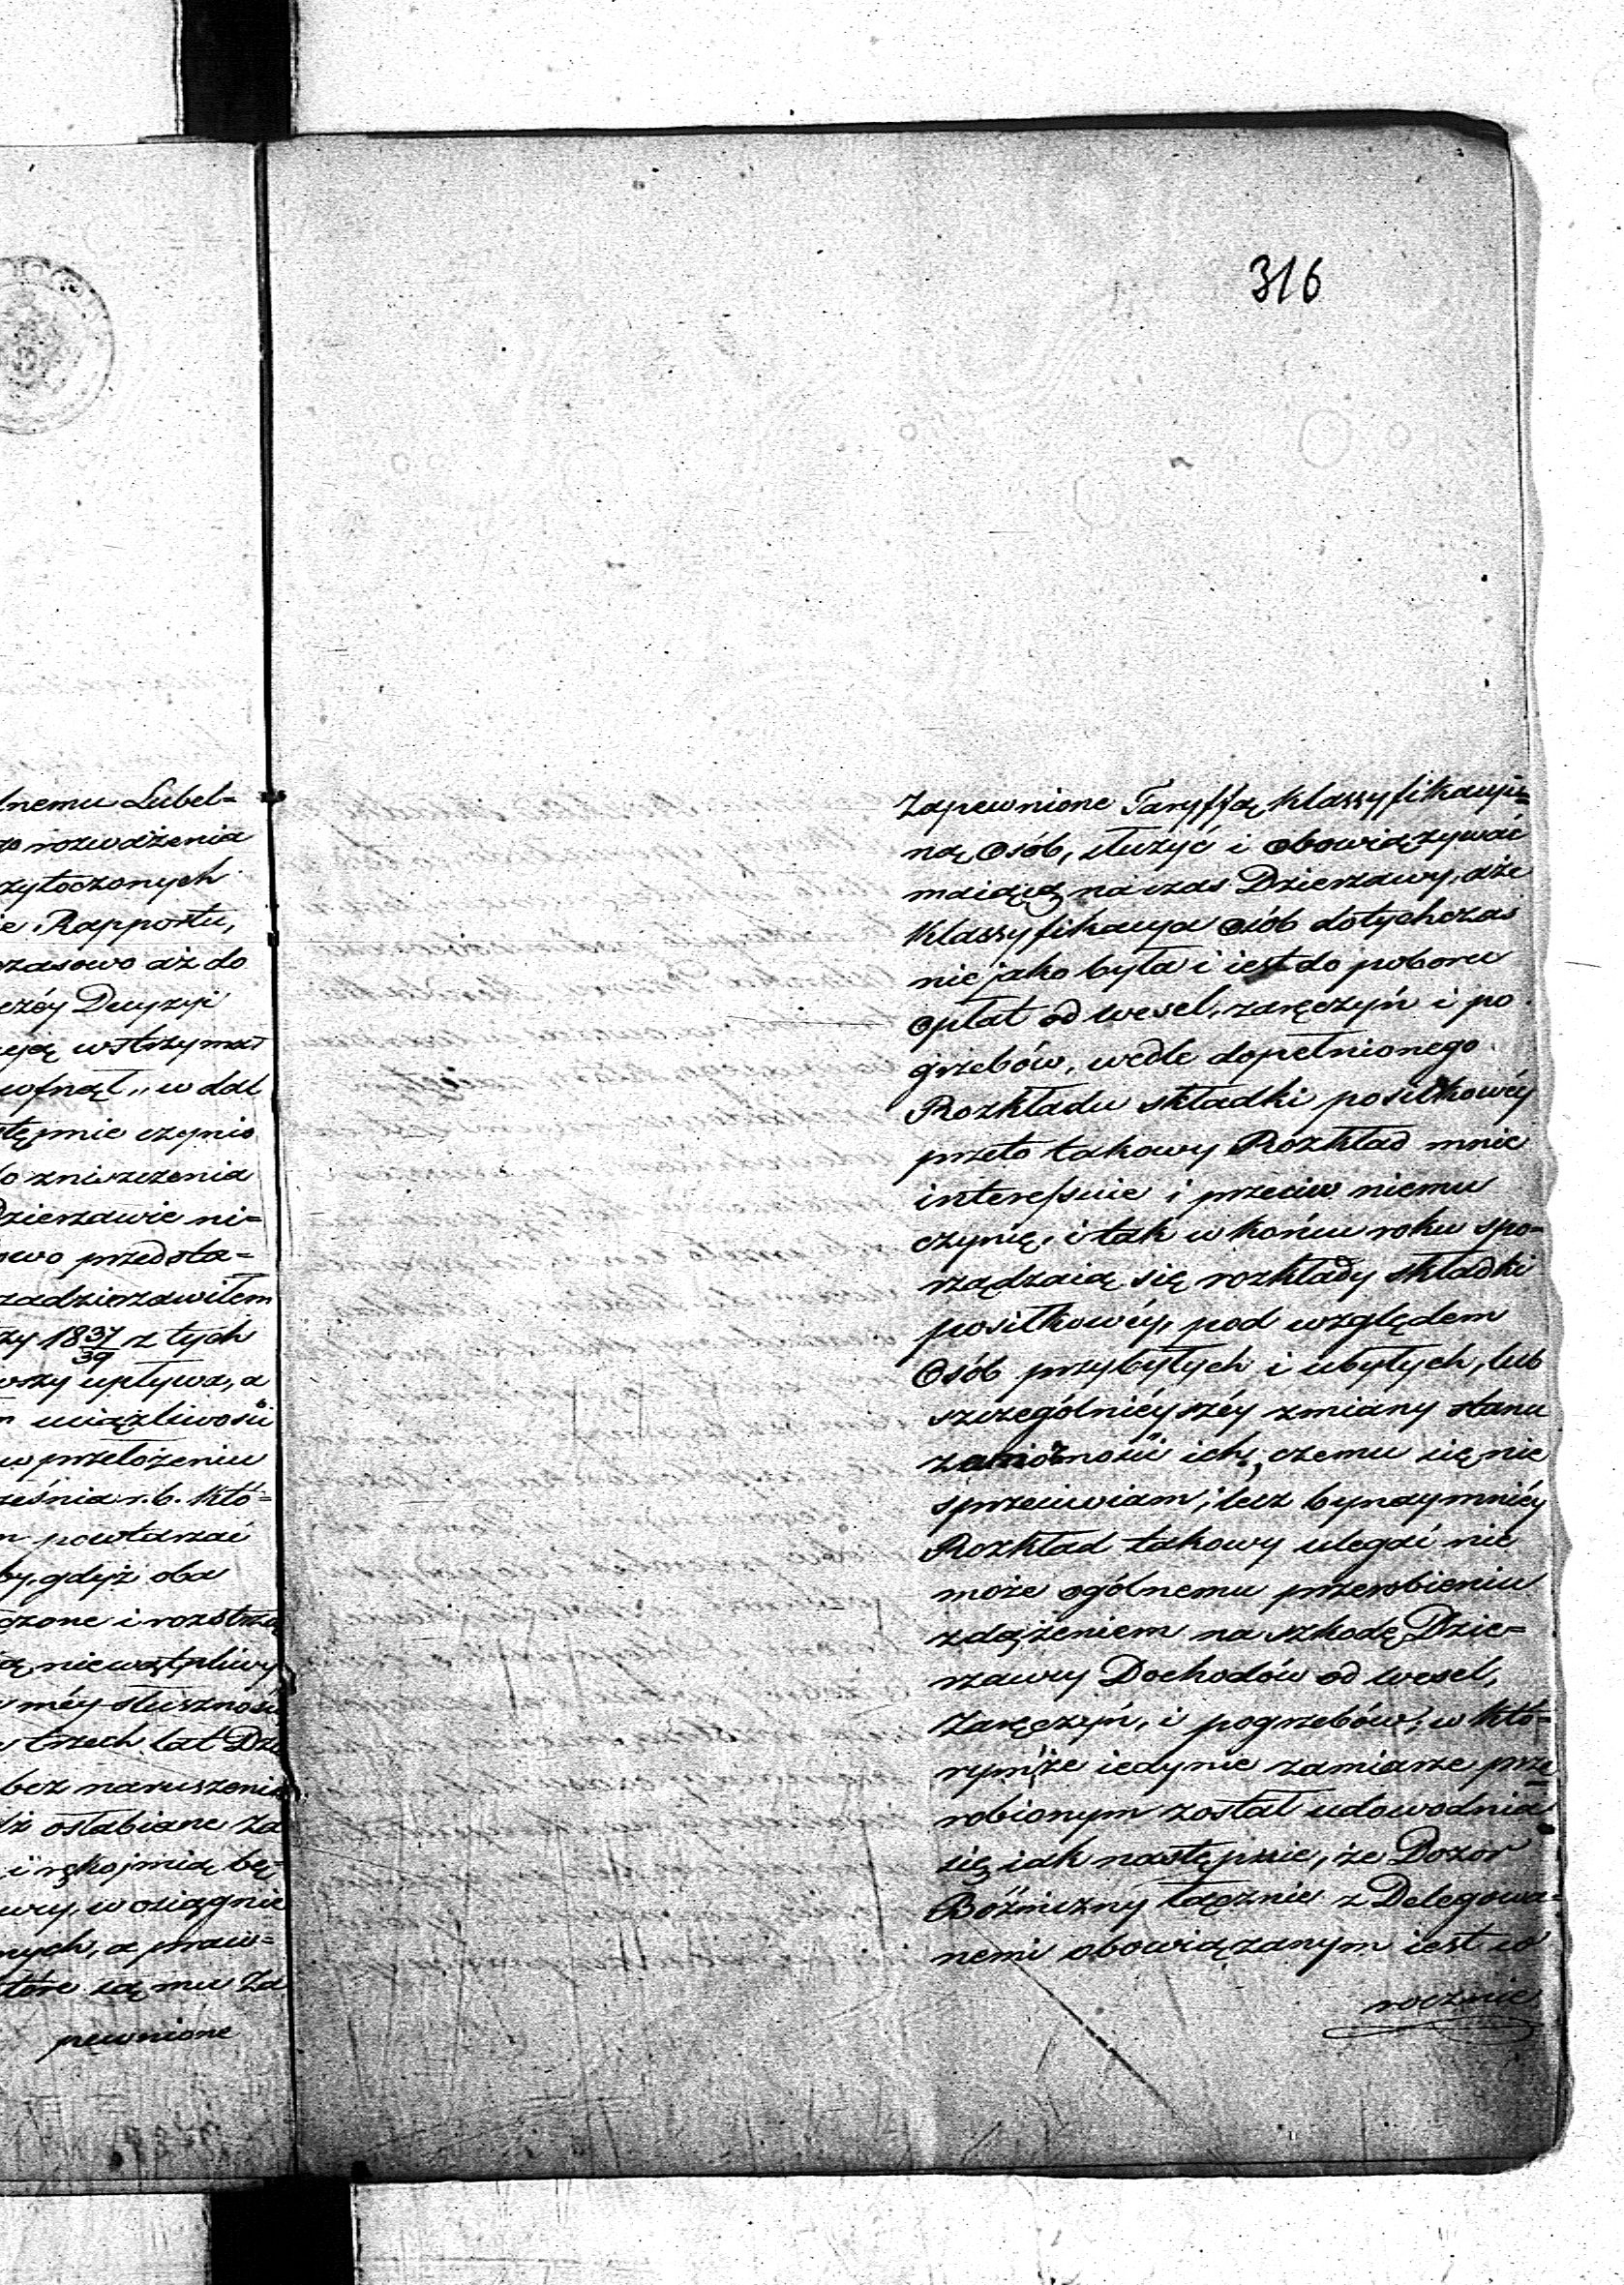 lnemu Lubel=
rozważenia
zytoczonych
ie Rapportu,
czasowo aż do
Decyzyi
wstrzymał
w dal
stępnie czynio
o zniszczenia
Dzierzawie ni=
owo przedsta=
zadzierzawiłem
zy 1837/39 z tych
wszy upływa, a
uciążliwości
w przełożeniu
ześnia r. b. któ=
powtarzać
by, gdyż oba
czone i roztrzą
niewątpliwy
méy słuszności
trzech lat Dzie
bez naruszenia
osłabiane za
i rękojmią bę=
wy, w osiągnie
nych, a praw=
które są mu Za
pewnione
316
Zapewnione Taryffą klassyfikacyi=
ną Osób, służyć i obowiązywać
maiącą na czas Dzierzawy, aże
klassyfikacya osób dotychczas
nie jako była i iest do poboru
opłat od wesel, zaręczyń i po
grzebów, wedle dopełnionego
Rozkładu składki posiłkowéy
przeto takowy Rozkład mnie
interessuie i przeciw niemu
czynię, i tak w końcu roku spo=
rządzaią się rozkłady składki
posiłkowéy, pod względem
Osób przybyłych i ubyłych, lub
szczególniéyszéy zmiany stanu
zamożności ich, czemu się nie
sprzeciwiam; lecz bynaymniéy
Rozkład takowy uledz nie
może ogólnemu przerobieniu
z dążeniem na szkodę Dzie=
rzawy Dochodów od wesel,
Zaręczyń, i pogrzebów; w któ=
rymże iedynie zamiarze prze
robionym został udowodnia
się iak następnie, że Dozor
Bóżniczny łącznie z Delegowa=
nemi obowiązanym iest co
rocznie